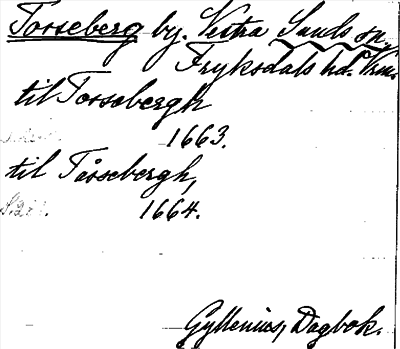 Torseberg by. Vestra Sunds sn
Fryksdals hd. Vrm.
til Torsebergh
1663.
til Tåssebergh,
1664.
Gyllenius, Dagbok.